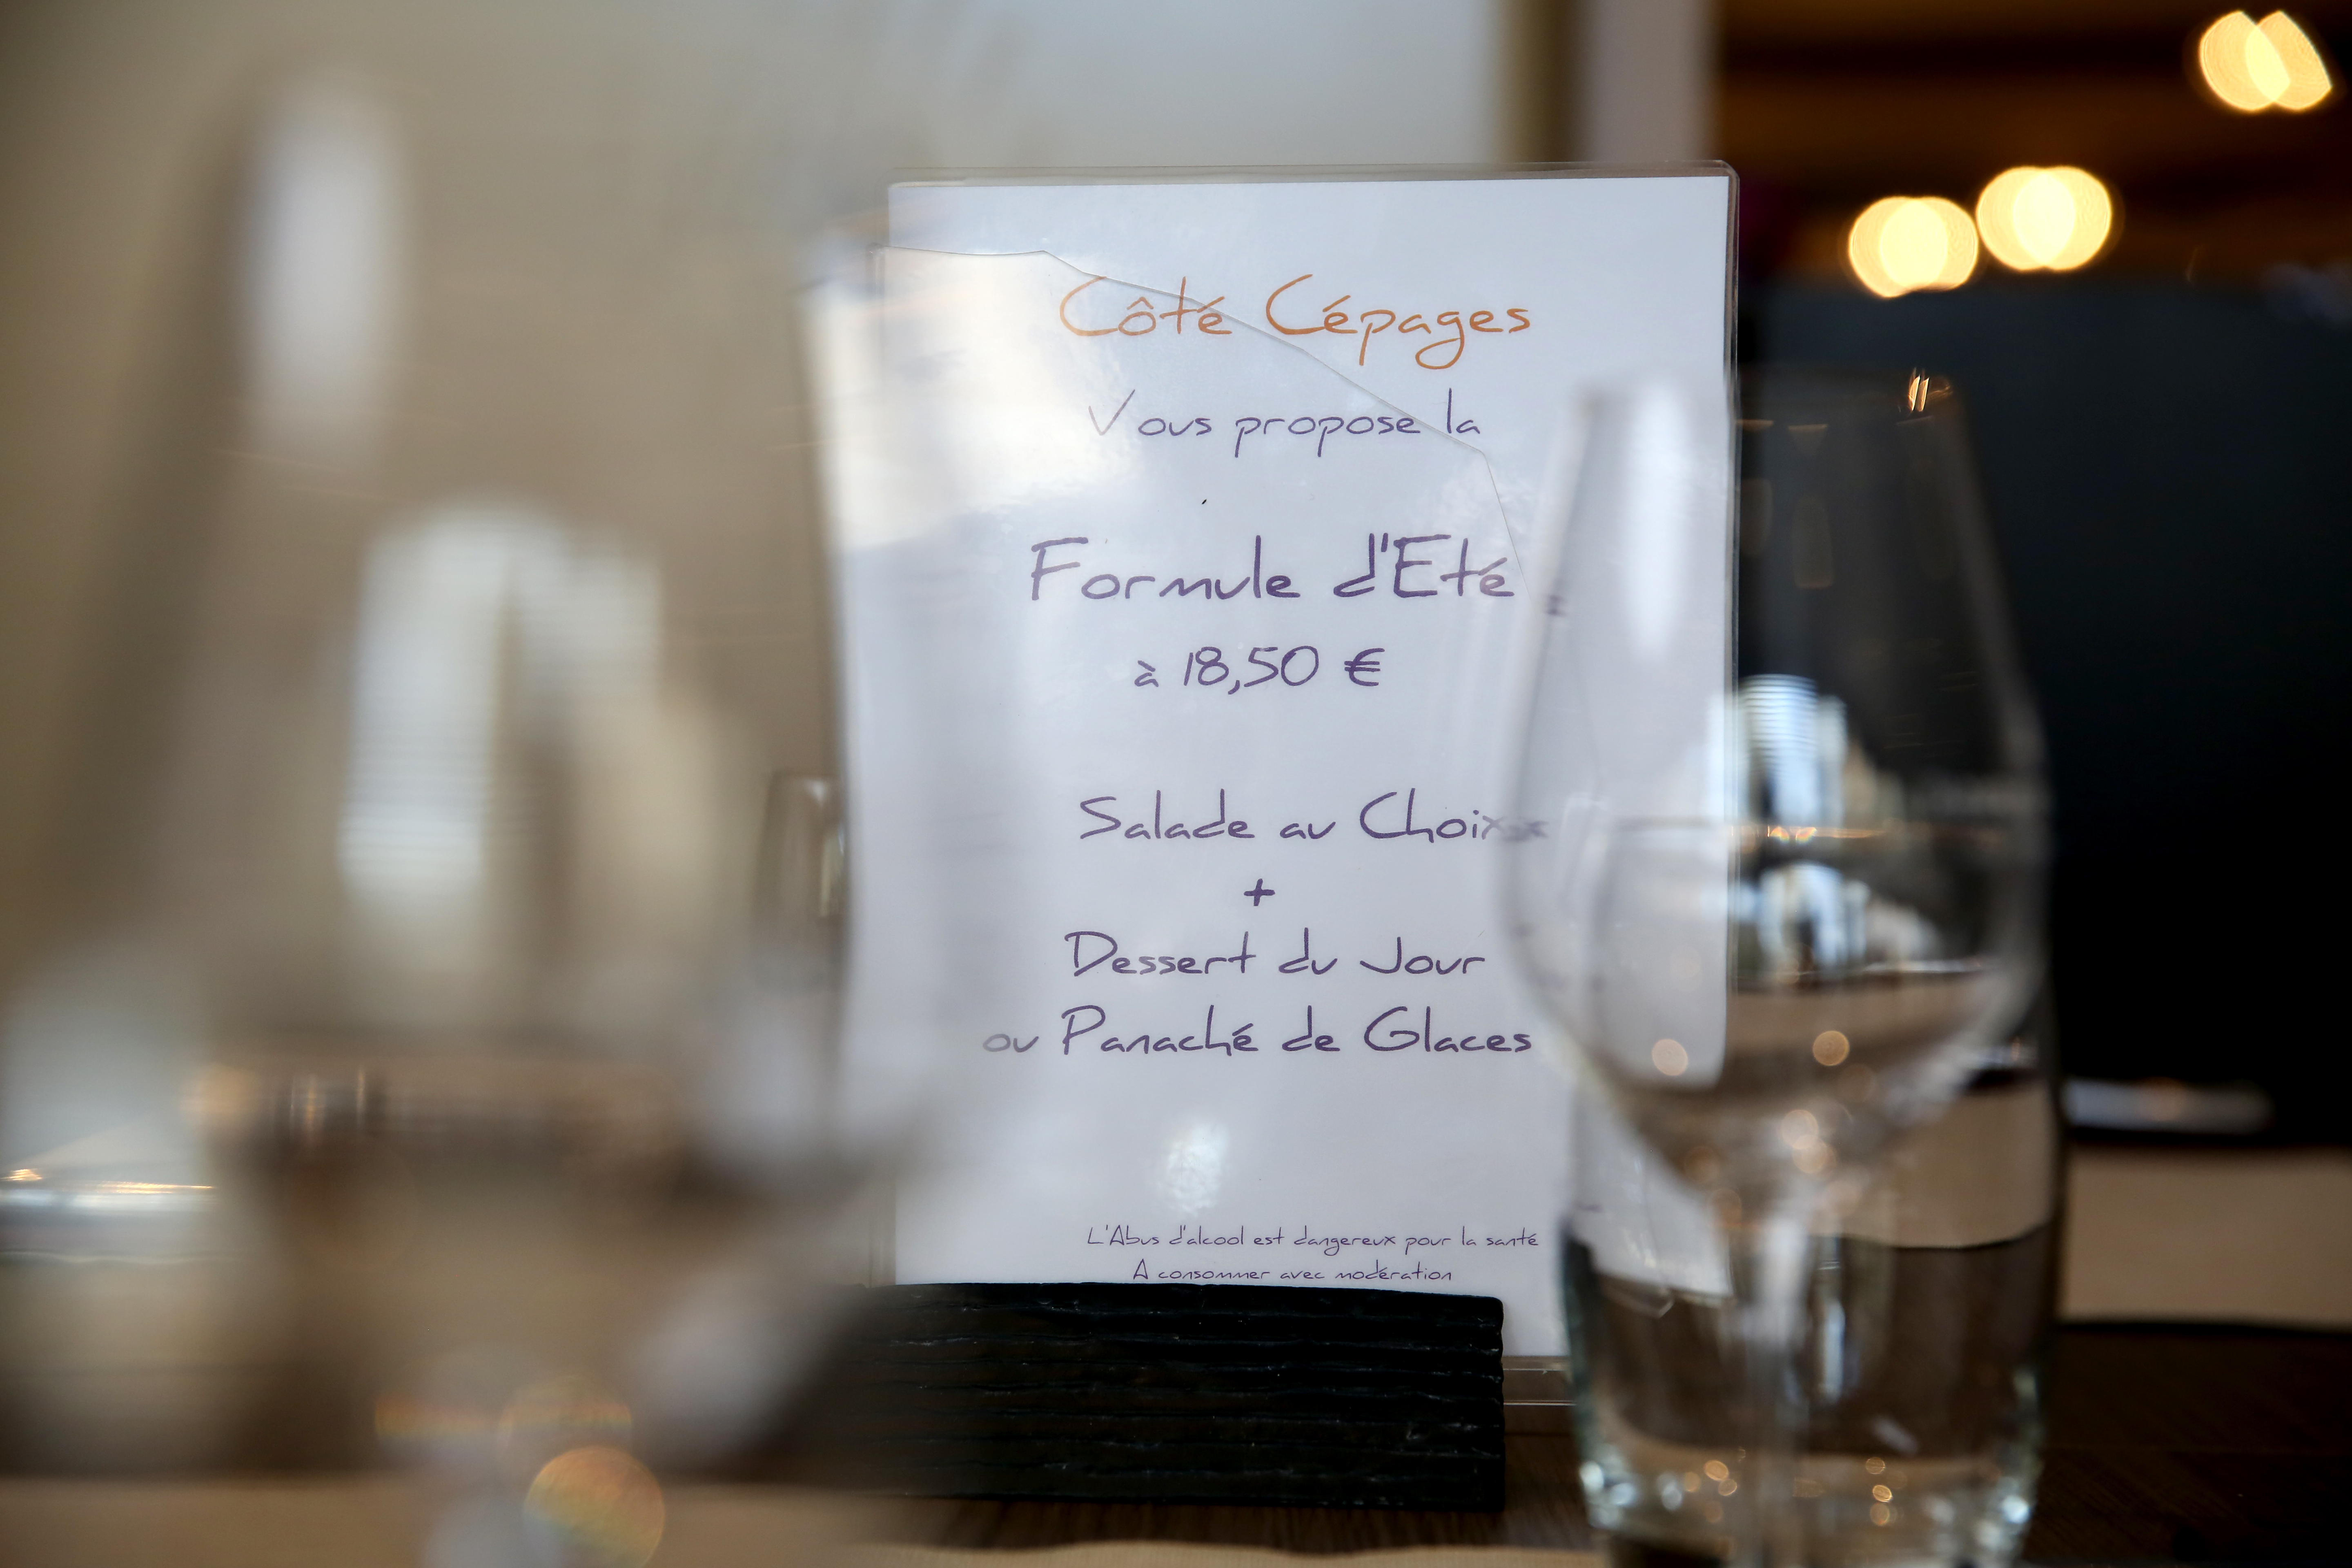 Côté Cépages
Vous propose la
Formule d'Eté
à 18,50 €
Salade au Choix
+
Dessert du Jour
ou Panaché de Glaces
L'Abus d'alcool est dangereux pour la santé
A consommer avec modération